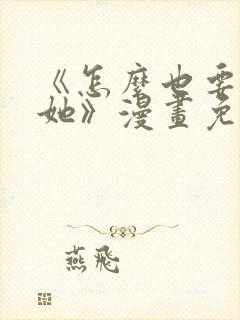 《怎麼也要
她》漫畫免
燕飛